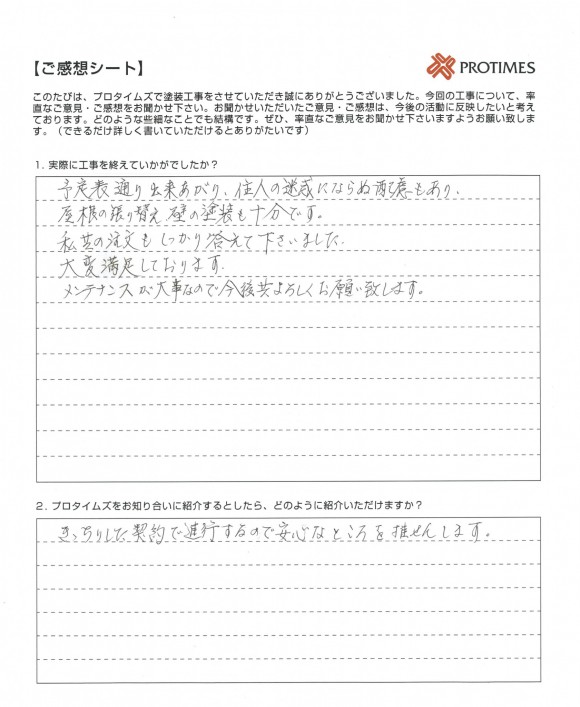 【ご感想シート】
PROTIMES
このたびは、プロタイムズで塗装工事をさせていただき誠にありがとうございました。今回の工事について、率
直なご意見・ご感想をお聞かせ下さい。お聞かせいただいたご意見・ご感想は、今後の活動に反映したいと考え
ております。どのような些細なことでも結構です。ぜひ、率直なご意見をお聞かせ下さいますようお願い致しま
す。（できるだけ詳しく書いていただけるとありがたいです）
1. 実際に工事を終えていかがでしたか？
予定表通り出来あがり、住人の迷惑にならぬ配慮もあり、
屋根の張り替え 壁の塗装も十分です。
私共の注文もしっかり答えて下さいました。
大変満足しております。
メンテナンスが大事なので今後共よろしくお願い致します。
2. プロタイムズをお知り合いに紹介するとしたら、どのように紹介いただけますか？
きっちりした契約で進行するので安心なところを推せんします。